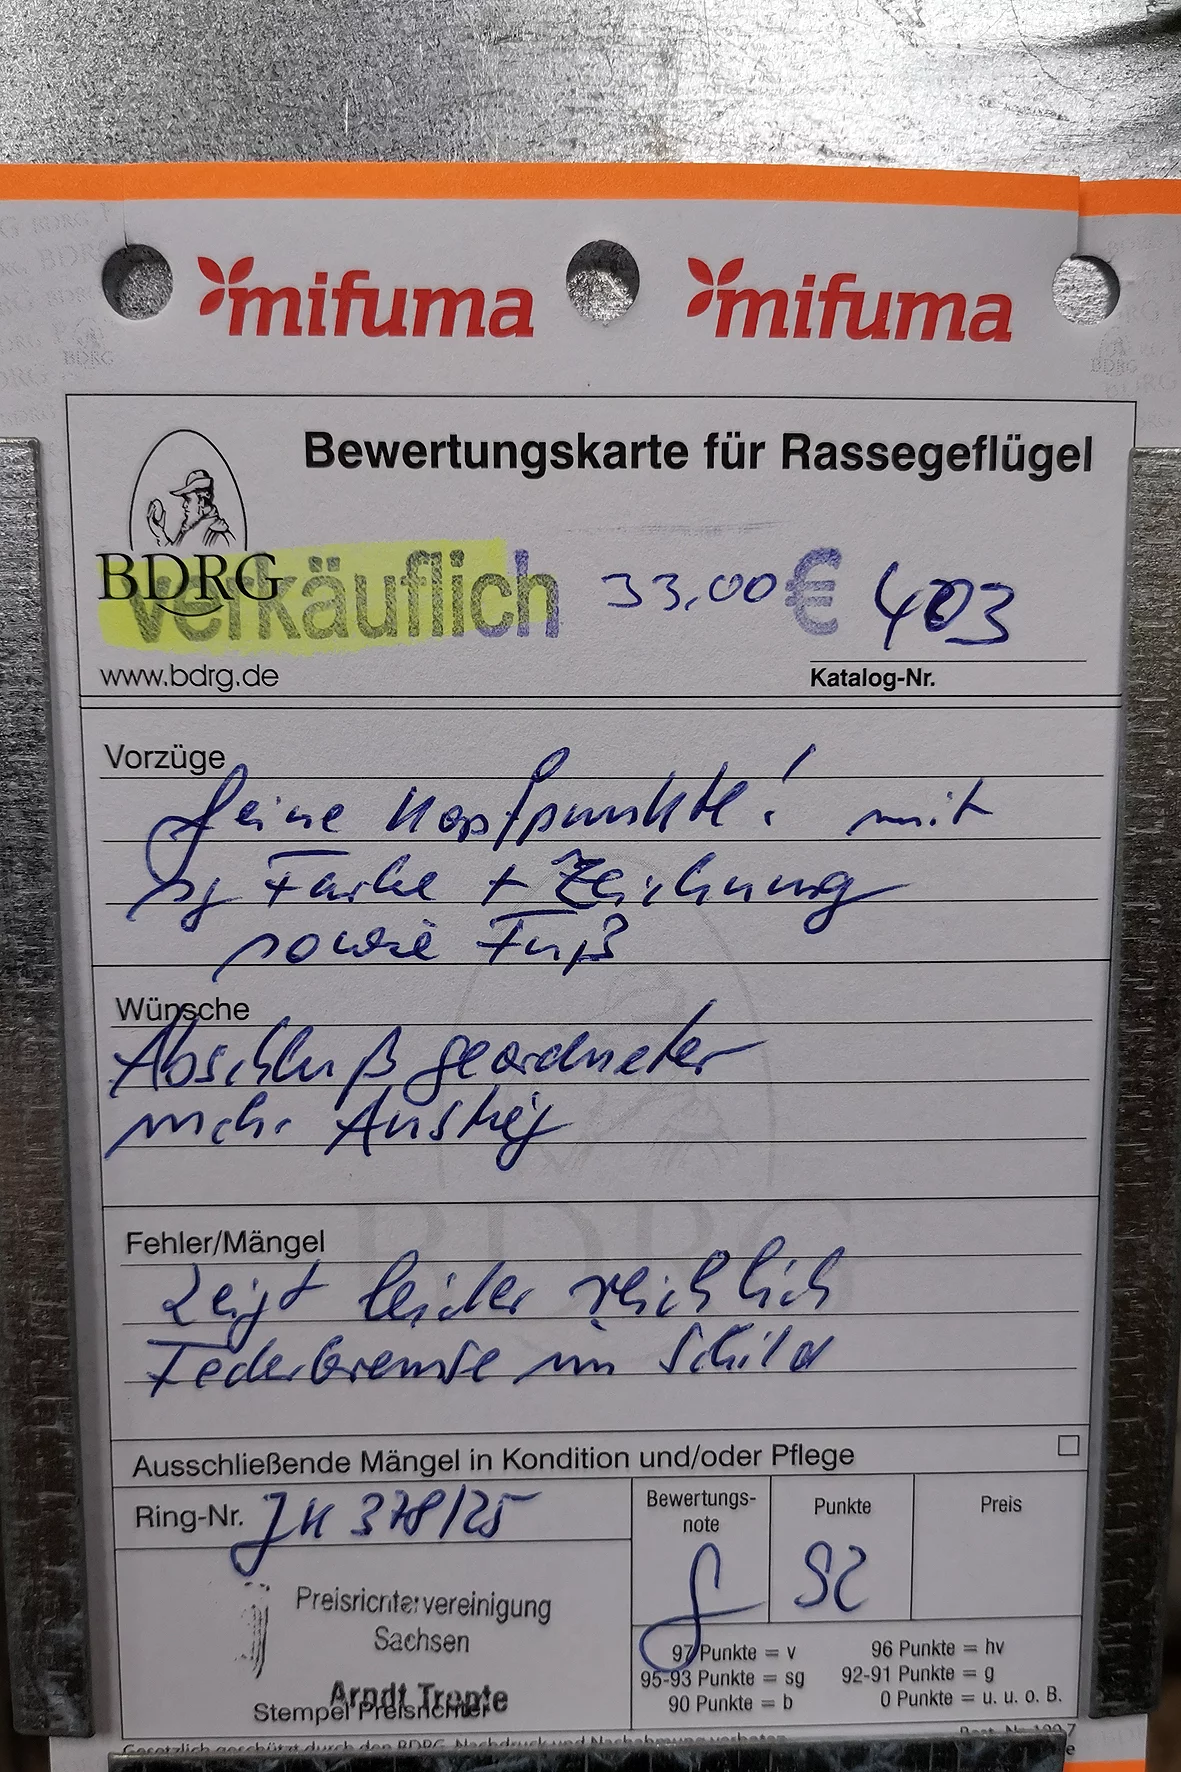 mifuma mifuma
Bewertungskarte für Rassegeflügel
BDRG
verkäuflich 33,00 € 403
www.bdrg.de
Katalog-Nr.
Vorzüge
feine Kopfpunkte! mit
sg Farbe + Zeichnung
sowie Fuß
Wünsche
Abschluß geordneter
mehr Anstieg
Fehler/Mängel
Zeigt leider reichlich
Federbremse im Schild
Ausschließende Mängel in Kondition und/oder Pflege
Ring-Nr. JK 378/25
Bewertungs-
note
Punkte
Preis
g
92
Preisrichtervereinigung
Sachsen
Arndt
Stempel Preisrichter
97 Punkte = v
96 Punkte = hv
95-93 Punkte = sg
92-91 Punkte = g
90 Punkte = b
0 Punkte = u. u. o. B.
Gesetzlich geschützt durch den BDRG, Nachdruck und Nachahmung verboten